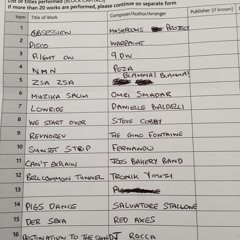 List of titles performed (BLOCK CAPITALS)
If more than 20 works are performed, please continue on separate form
Item Title of Work Composer/Author/Arranger Publisher (if known)
1 OBSESSION MUSHROOMS PROJECT
2 DISCO WARPAINT
3 RIGHT ON 9DW
4 NMN POZA
5 ZSA ZSA BLAMMA! BLAMMA!
6 MUZIKA SALIM OMRI SMADAR
7 LOWRIDE DANIELE BALDELLI
8 WE START OVER STEVE COBBY
9 THE GINO FONTAINE
10 SUNSET STRIP FERNANDO
11 CAN'T EXPLAIN BAKERY BAND
12 BELLCOMMON TUNNEL TRONIK YOUTH
13
14 PIGS DANCE SALVATORE STALLONE
15 DER SEKA RED AXES
16 DESTINATION TO THE SUN DJ ROCCA